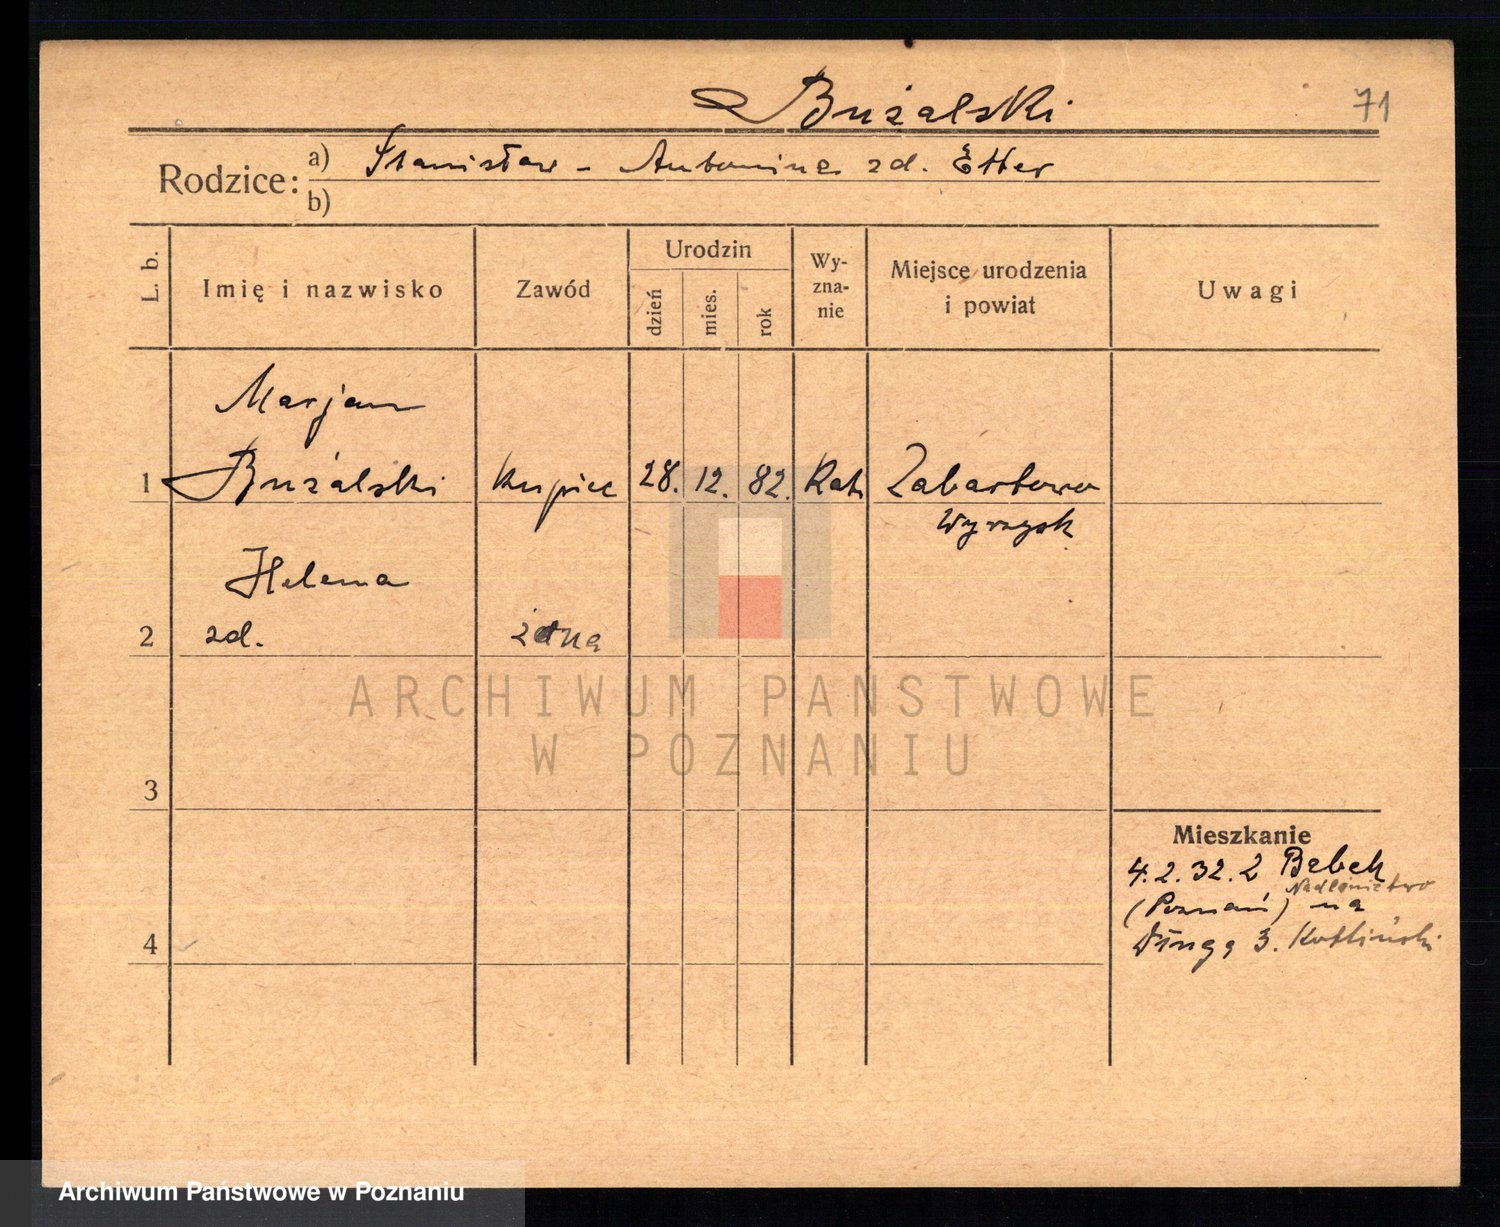 Bużalski
71
Rodzice: a) Stanisław - Antonina zd. Etter
b)
L. b.
Imię i nazwisko
Zawód
Urodzin
dzień
mies.
rok
Wy-
zna-
nie
Miejsce urodzenia
i powiat
Uwagi
Marjan
1 Bużalski kupiec 28. 12. 82. Kat. Żabartowo
Wyrzysk
Helena
2 zd.
3
Mieszkanie
4.2.32. z
Nadleśnictwo
(Poznań) na
4 Długą 3. Kotliński
ARCHIWUM PAŃSTWOWE
W POZNANIU
Archiwum Państwowe w Poznaniu